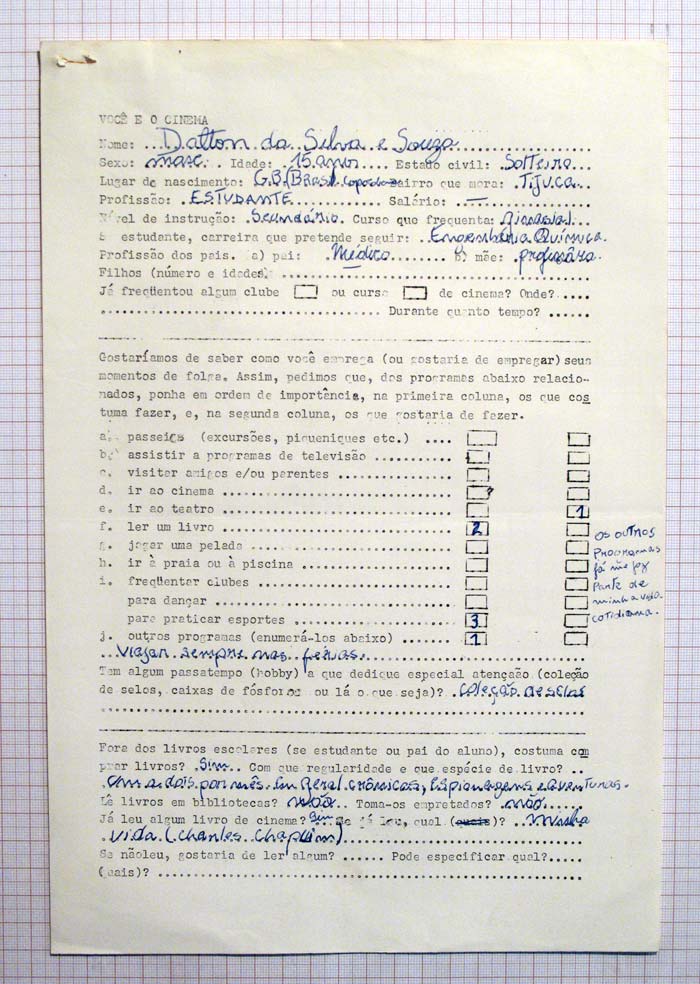 VOCÊ E O CINEMA
Nome: ...Dalton da Silva e Souza...................
Sexo: masc. . Idade: .15 anos.... Estado civil: .Solteiro...
Lugar de nascimento: G.B.(Brasil bairro que mora: .Tijuca...
Profissão: .ESTUDANTE............. Salário: ..—.............
Nível de instrução: .Secundário. Curso que frequenta: Ginasial.
É estudante, carreira que pretende seguir: ..Engenharia Química.
Profissão dos pais. a) pai: ...Médico........ b) mãe: .professôra.
Filhos (número e idades) ........................................
Já freqüentou algum clube ou curso de cinema? Onde?.....
.................................... Durante quanto tempo? ......
Gostaríamos de saber como você emprega (ou gostaria de empregar) seus
momentos de folga. Assim, pedimos que, dos programas abaixo relacio-
nados, ponha em ordem de importância, na primeira coluna, os que cos
tuma fazer, e, na segunda coluna, os que gostaria de fazer.
a. passeios (excursões, piqueniques etc.) ....
b. assistir a programas de televisão ..........
c. visitar amigos e/ou parentes ...............
d. ir ao cinema ...............................
e. ir ao teatro ............................... 1
f. ler um livro ............................... 2
g. jogar uma pelada ...........................
h. ir à praia ou à piscina ....................
i. freqüentar clubes ..........................
para dançar ................................
para praticar esportes ..................... 3
j. outros programas (enumerá-los abaixo) ...... 1
os outros
programas
já me fez
parte de
minha vida
cotidiana.
..Viajar sempre nas férias...............................
Tem algum passatempo (hobby) a que dedique especial atençaão (coleção
de selos, caixas de fósforos ou lá o que seja)? .coleção de selos
................................................................
Fora dos livros escolares (se estudante ou pai do aluno), costuma com
prar livros? .Sim.. Com que regularidade e que espécie de livro? ..
.Um a dois por mês. Em geral crômicas, Espionagens e aventuras.
Lê livros em bibliotecas? não.. Toma-os empretados? .não.....
Já leu algum livro de cinema? Sim Se já leu, qual (quais)? ..Minha
..Vida (Charles Chaplin)...............................
Se nãoleu, gostaria de ler algum? ...... Pode especificar qual?.....
(quais)? .......................................................